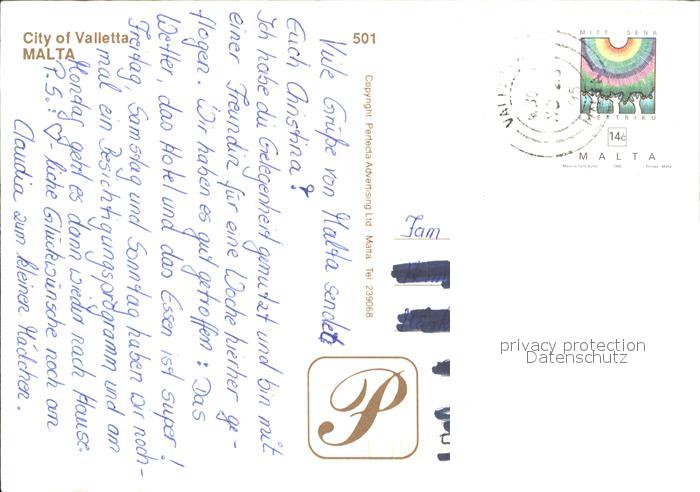 City of Valletta
MALTA
501
Viele Grüße von Malta sendet
Euch Christina!
Ich habe die Gelegenheit genutzt und bin mit
einer Freundin für eine Woche hierher ge-
flogen. Wir haben es gut getroffen: Das
Wetter, das Hotel und das Essen ist super!
Freitag, Samstag und Sonntag haben wir noch-
mal ein Besichtigungsprogramm und am
Montag geht es dann wieder nach Hause.
P.S.: -liche Glückwünsche noch an
Claudia zum kleinen Mädchen.
Copyright Perfecta Advertising Ltd - Malta Tel: 239068
P
Fam
MITT SENA
ELETTRIKU
14c
MALTA
privacy protection
Datenschutz